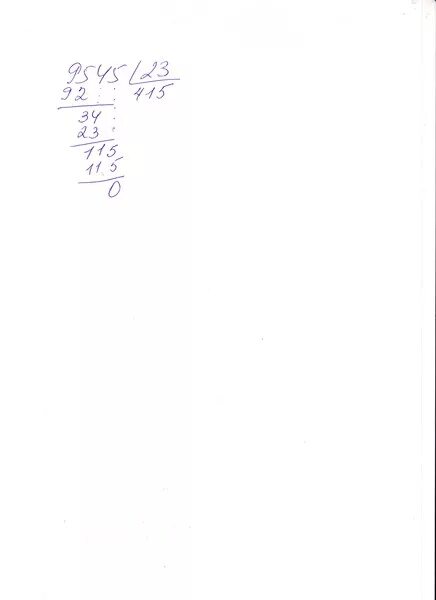 9545 23
92 415
34
23
115
115
0